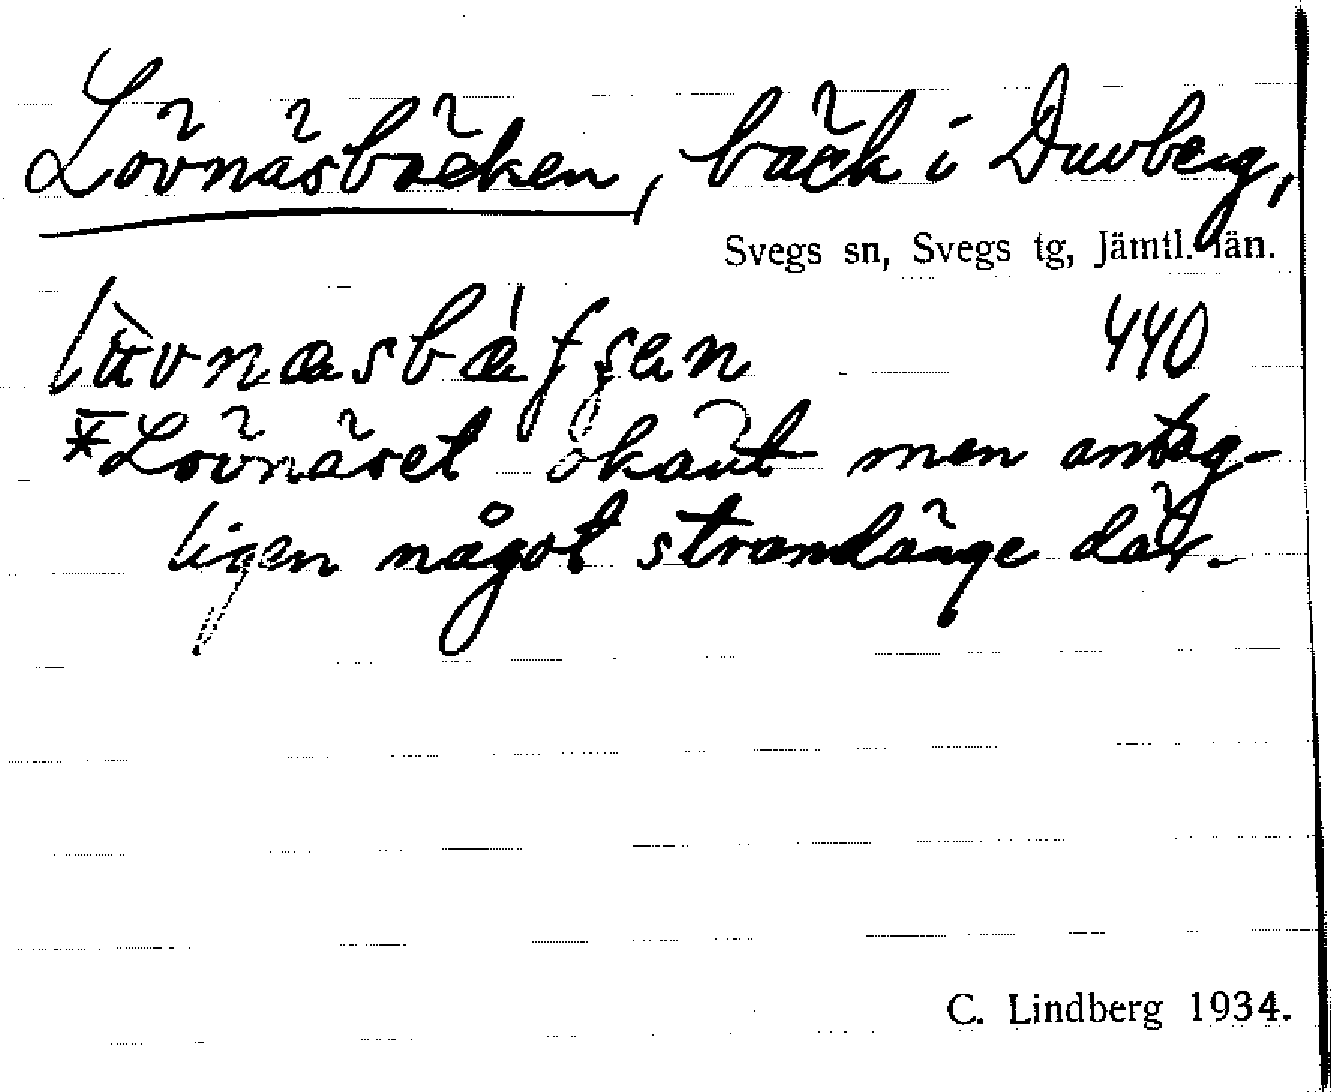 Lövnäsbäcken, bäck i Duvberg,
Svegs sn, Svegs tg, Jämtl. län.
440
*Lövnäset okänt men antag-
ligen något strandänge där.
C. Lindberg 1934.